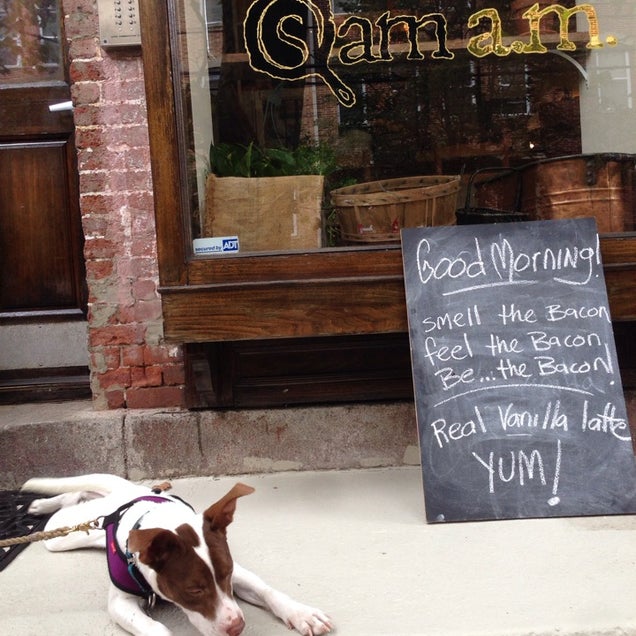 Sam a.m.
secured by ADT
Good Morning!
smell the Bacon
feel the Bacon,
Be...the Bacon!
Real Vanilla latte
YUM!